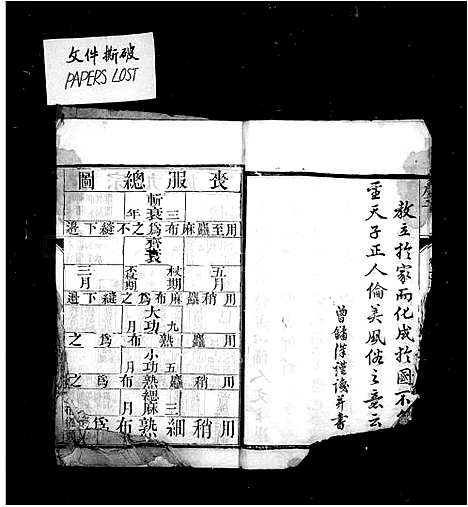 文件撕破
PAPERS LOST
教立於家而化成於國不
聖天子正人倫美風俗之意云
曾鏞洋謹識并書
喪服總圖
斬衰三年
用至麤麻布為之不縫下邊
齊衰
五月
杖期
不杖期
三月
用稍麤麻布為之縫下邊
大功九月
用麤熟布為之
小功五月
用稍麤熟布為之
緦麻三月
用稍細熟布為